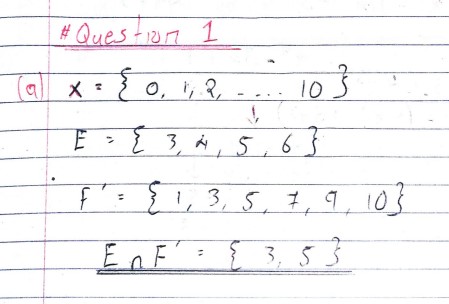 # Question 1
(a) X = { 0, 1, 2, ---- 10 }
E = { 3, 4, 5, 6 }
F' = { 1, 3, 5, 7, 9, 10 }
E ∩ F' = { 3, 5 }